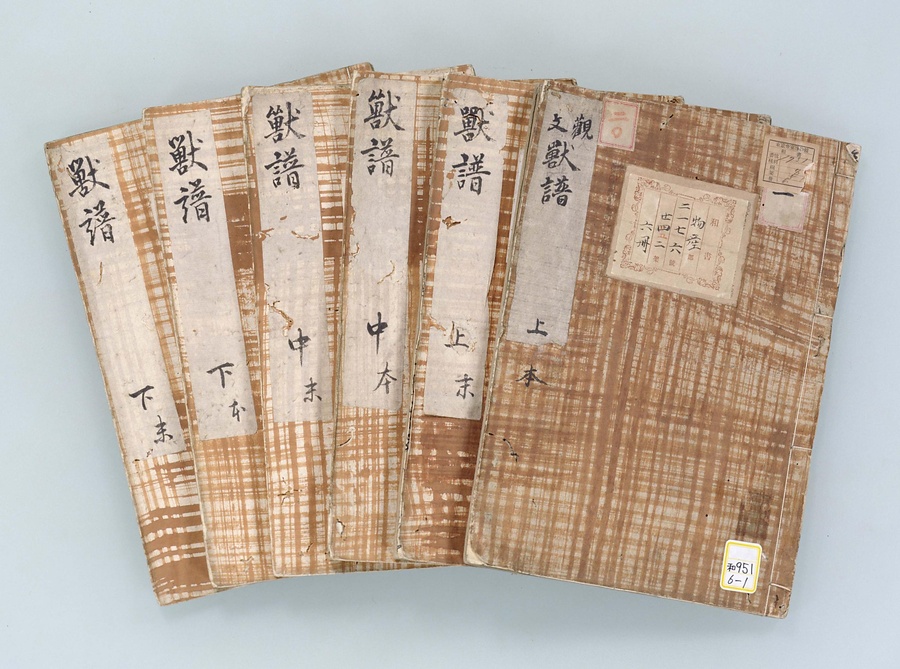 一
二〇
物産
二一七六
廿四二
六冊
觀文獸譜
上
本
獸譜
上
末
獸譜
中
本
獸譜
中
末
獸譜
下
本
獸譜
下
末
和951
6-1